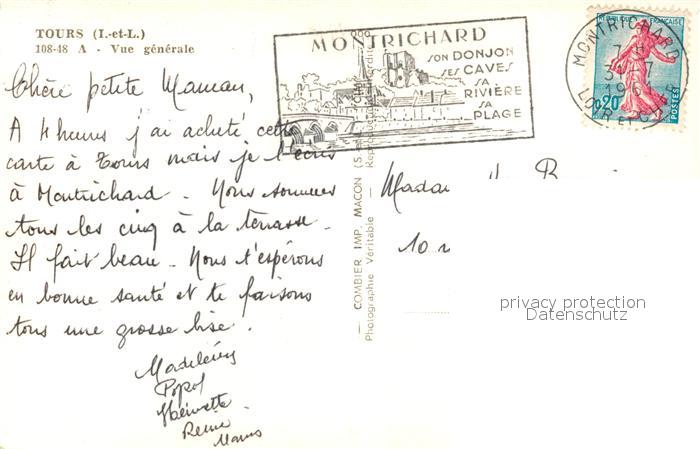 TOURS (I.-et-L.)
108-48 A - Vue générale
MONTRICHARD
SON DONJON
SES CAVES
SA RIVIÈRE
SA PLAGE
MONTRICHARD
LOIR ET CHER
RÉPUBLIQUE FRANÇAISE
0,20
POSTES
Chère petite Maman,
A 4 heures j'ai acheté cette
carte à Tours mais je l'écris
à Montrichard. Nous sommes
tous les cinq à la terrasse.
Il fait beau. Nous t'espérons
en bonne santé et te faisons
tous une grosse bise.
Popol
Reine
COMBIER IMP. MACON
Photographie Véritable -
10
privacy protection
Datenschutz